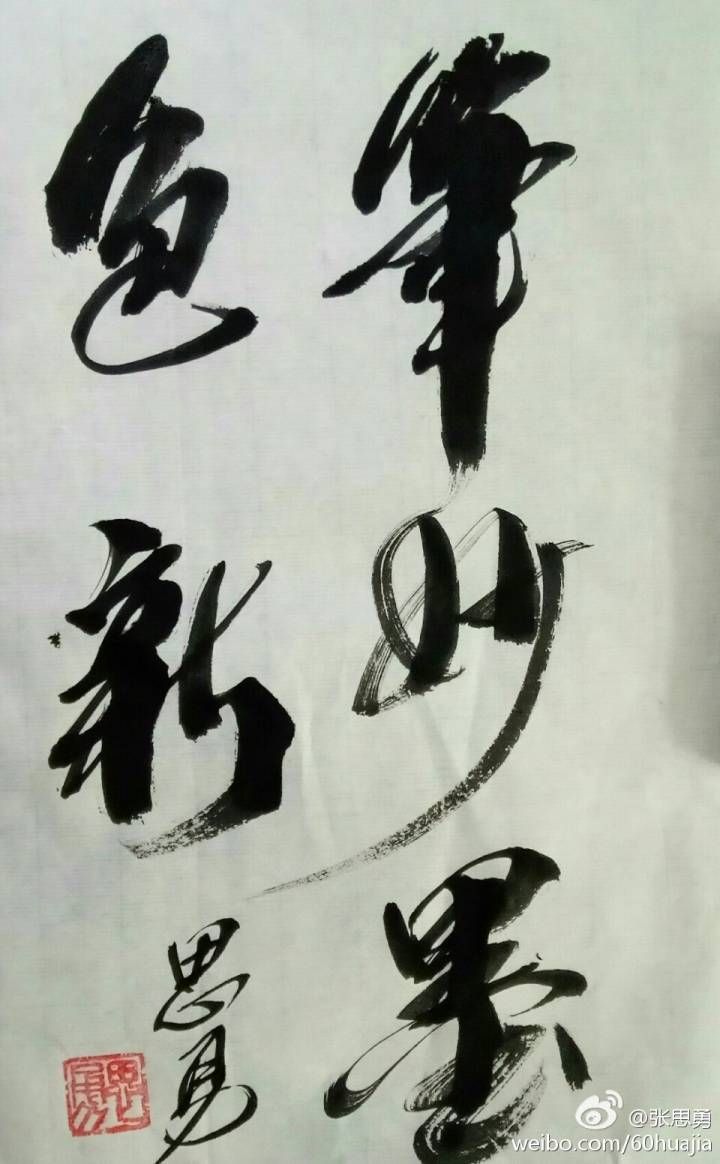 筆妙墨
色新
思勇
思勇
@张思勇
weibo.com/60huajia